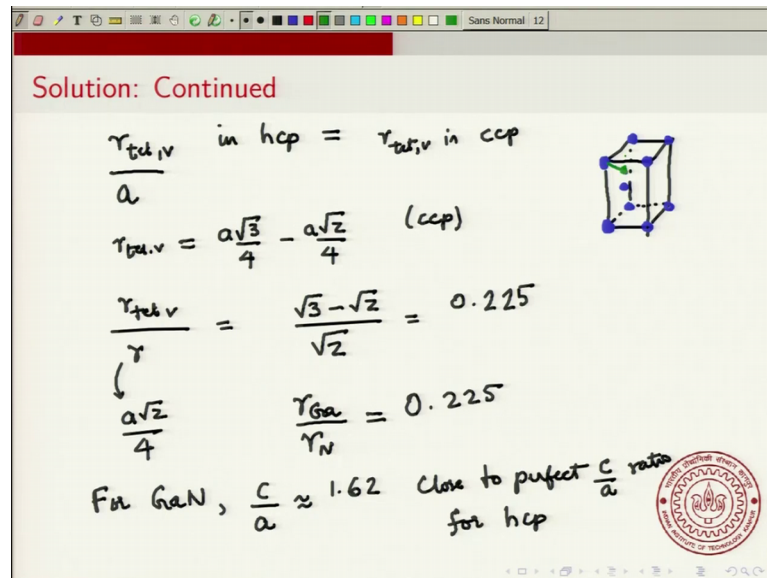 Sans Normal 12
Solution: Continued
r_{tet,v}/a in hcp = r_{tet,v} in ccp
r_{tet.v} = a√3/4 - a√2/4 (ccp)
r_{tet v}/r = (√3 - √2)/√2 = 0.225
a√2/4
r_{Ga}/r_N = 0.225
For GaN, c/a ≈ 1.62 Close to perfect c/a ratio
for hcp
INDIAN INSTITUTE OF TECHNOLOGY KANPUR